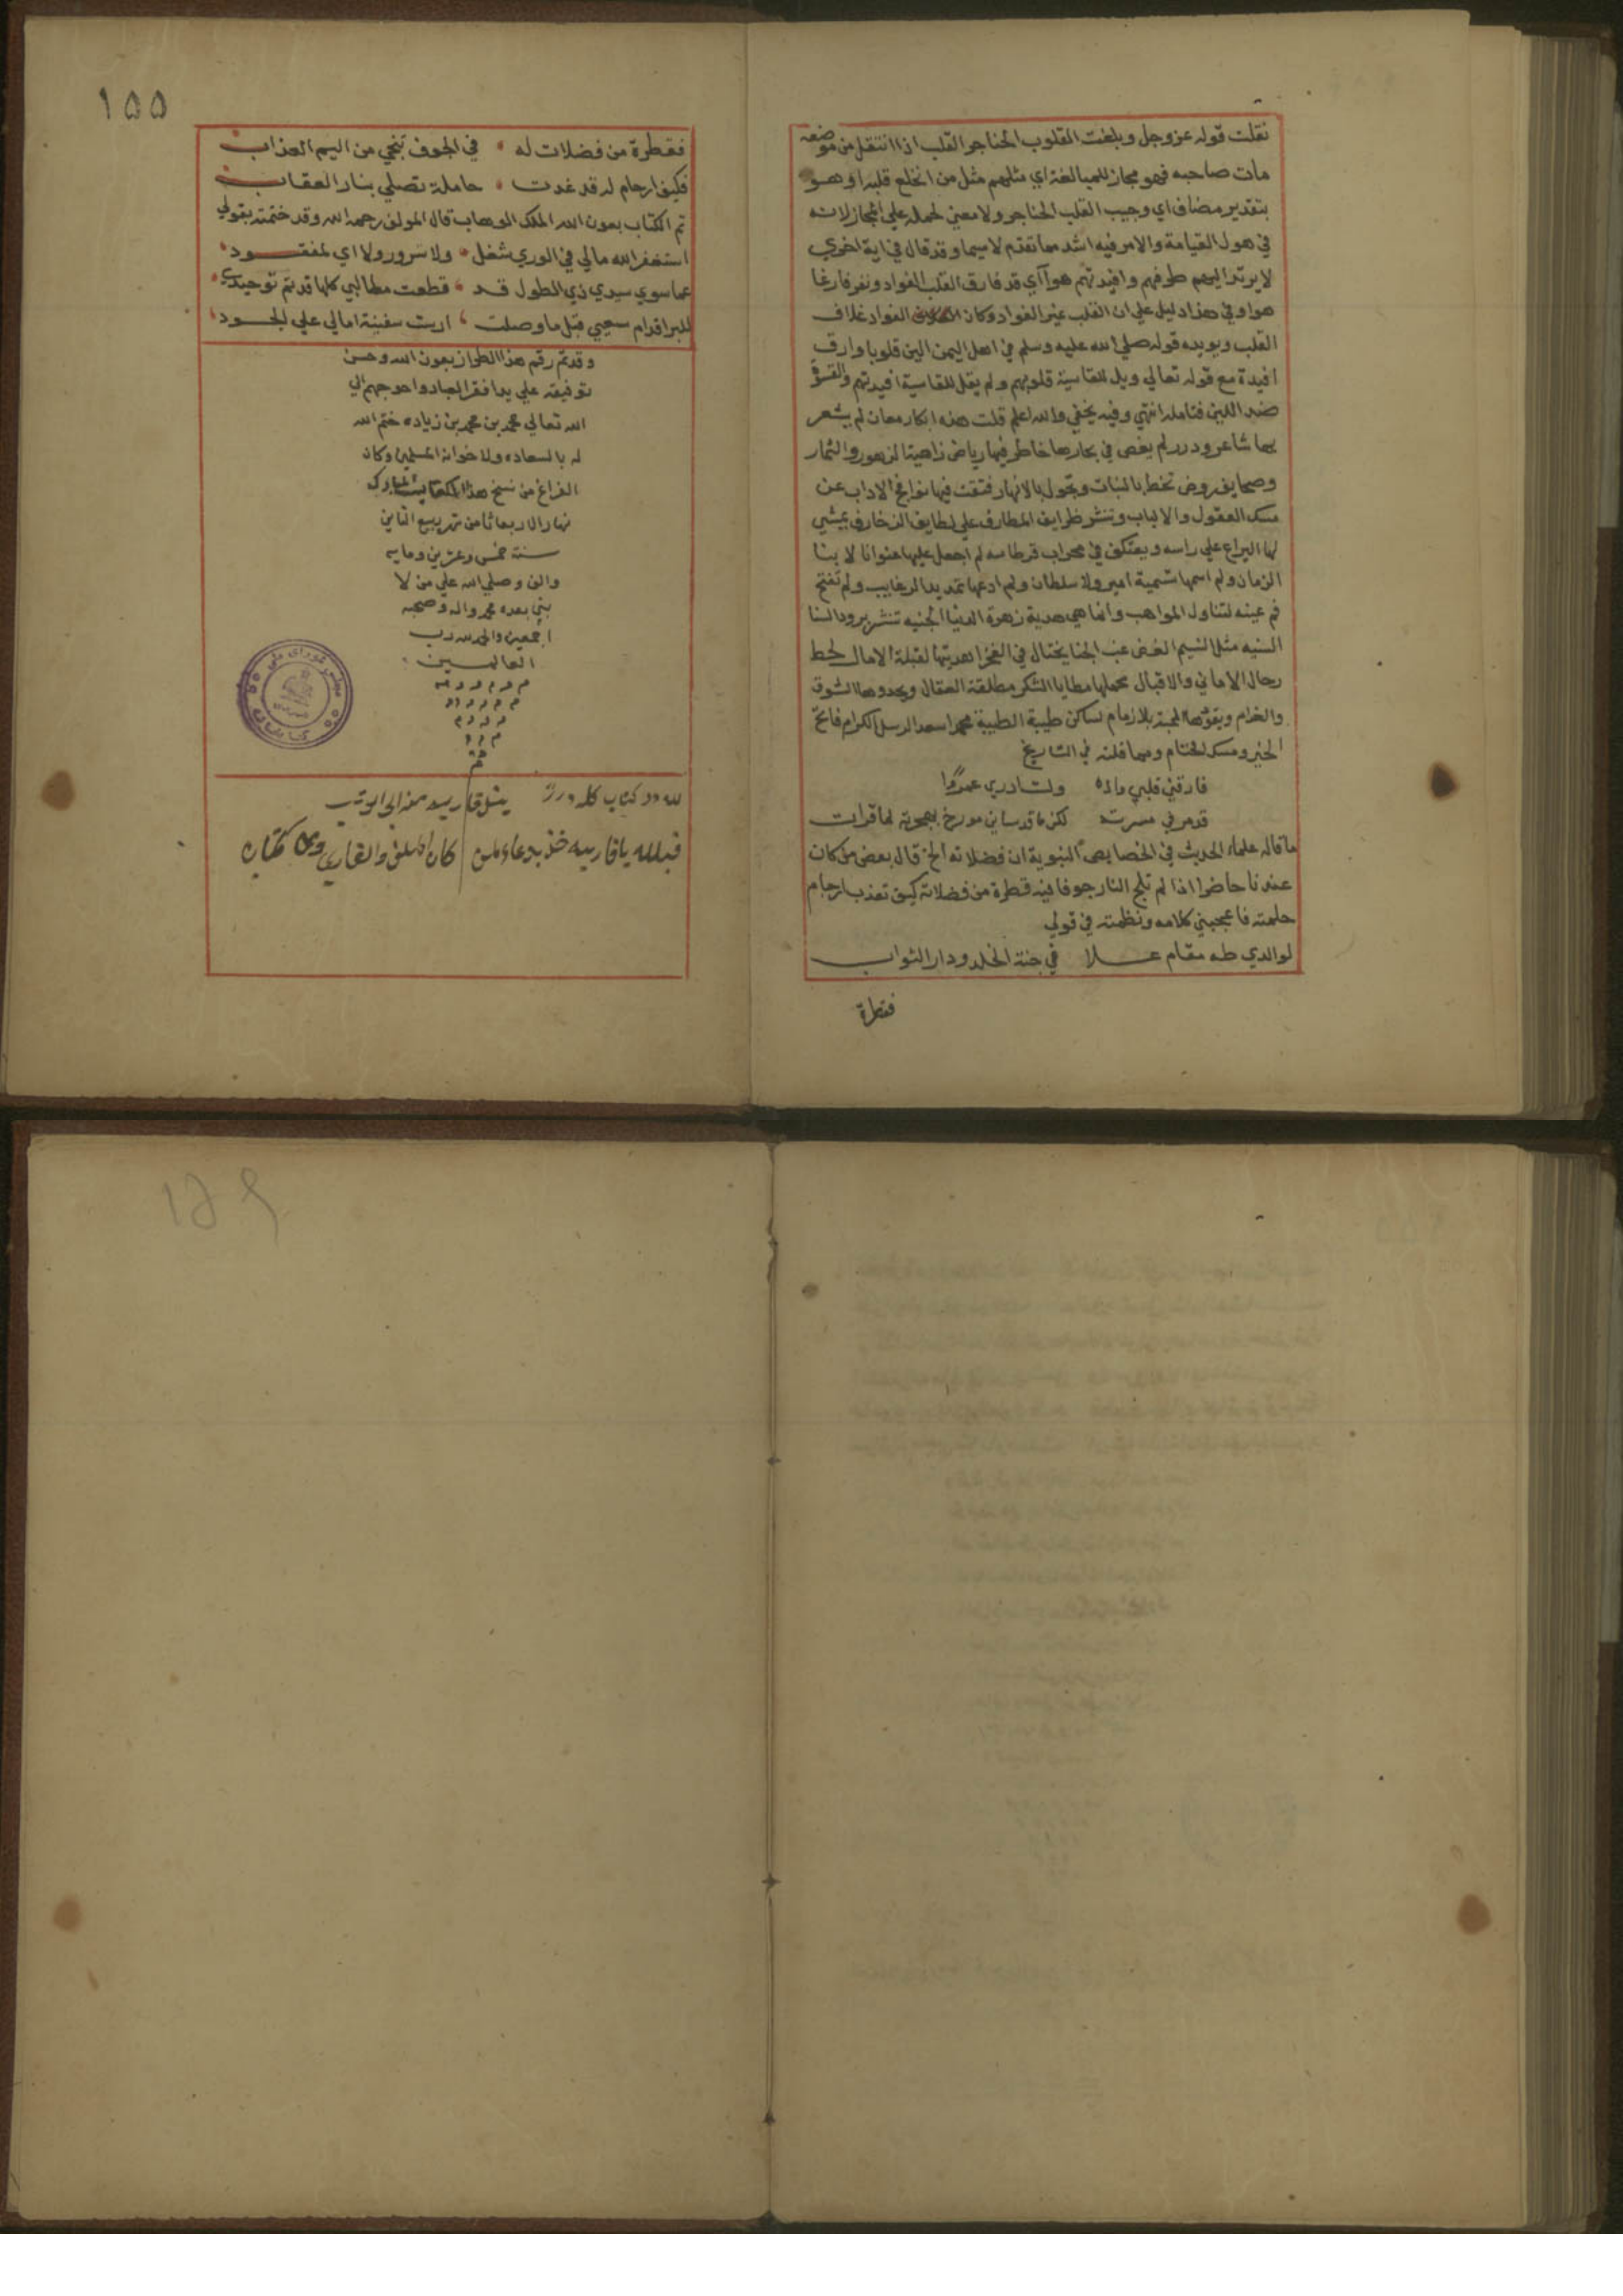 نقلت قوله عز وجل وبلغت القلوب الحناجر القلب اذا انتقل من موضعه
مات صاحبه فهو مجاز للمبالغة اي مثلهم مثل من انخلع قلبه او هو
بتقدير مضاف اي وجيب القلب الحناجر ولا معني لحمله علي المجاز لانه
في هول القيامة والامر فيه اشد مما تقدم لا سيما وقد قال في اية اخري
لا يرتد اليهم طرفهم وافيدتهم هوآ اي قد فارق القلب الفواد ونفر فارغا
هواو في هذا دليل علي ان القلب غير الفواد وكان الفواد غلاف
القلب ويويده قوله صلي الله عليه وسلم في اهل اليمن الين قلوبا وارق
افيدة مع قوله تعالي ويل للقاسية قلوبهم ولم يقل للقاسية افيدتهم والقسوة
ضد اللين فتامله انتهي وفيه يخفي والله اعلم قلت هذه ابكار معان لم يشعر
بها شاعر ودرر لم يغص في بحارها خاطر فيها رياض زاهية الزهور والثمار
وصحايف روض تخط بالنبات وتجول بالانهار فتقت فيها نوافج الاداب عن
مسك العقول والالباب وتنشر ظرايف المطارف علي لطايف الزخارف يمشي
لها اليراع علي راسه ويعتكف في محراب قرطاسه لم اجعل عليها عنوانا لابنا
الزمان ولم اسمها تسمية امير ولا سلطان ولم ادعها تمد يد الرغايب ولم تفتح
فم عينه لتناول المواهب وانما هي هدية زهرة الدنيا الجنيه تنشر برود السنا
السنيه مثل النسيم الغض غب الحنا يختال في الفخر اهديتها لقبلة الامال لحط
رحال الاماني والاقبال محملها مطايا الشكر مطلقة العقال ويحدوها الشوق
والغرام ويقودها المحبة بلا زمام لساكن طيبة الطيبة محمد اسعد الرسل الكرام فاتح
الخير ومسك الختام ومما قلته في التاريخ
فارقني قلبي ولست ادري عمدا
قد مر في مسرت لكن مورخ بهجرة لما قرات
ما قاله علماء الحديث في الخصايص النبوية ان فضلاته الخ قال بعض من كان
عندنا حاضرا اذا لم تلج النار جوفا فيه قطرة من فضلاته كيف تعذب ارحام
حلمته فاعجبني كلامه ونظمته في قولي
لوالدي طه مقام عـلا في جنة الخلد ودار الثواب
فقطرة
١٥٥
فقطرة من فضلات له في الجوف تنجي من اليم العذاب
فكيف ارحام له قد غدت حاملة تصلي بنار العقاب
تم الكتاب بعون الله الملك الوهاب قال المولف رحمه الله وقد ختمته بقولي
استغفر الله مالي في الوري شغل ولا سرور ولا اي لمفقود
عما سوي سيدي ذي الطول قد قطعت مطالبي كلها قد تم توحيدي
للبر اقدام سعيي قبل ما وصلت ارست سفينة امالي علي الجود
وقد تم رقم هذا الطراز بعون الله وحسن
توفيقه علي يد افقر العباد واحوجهم الي
الله تعالي محمد بن محمد بن زياده ختم الله
له بالسعاده ولاخوانه المسلمين وكان
الفراغ من نسخ هذا الكتاب المبارك
نهار الاربعا ثامن شهر ربيع الثاني
سنة خمس وعشرين ومايه
والف وصلي الله علي من لا
نبي بعده محمد واله وصحبه
اجمعين والحمد لله رب
العالمين
مجلس شورای ملی
کتابخانه
لله در كتاب كله درر
فبالله يا قاريه خذ بدعاء لمن كان المولف والقاري